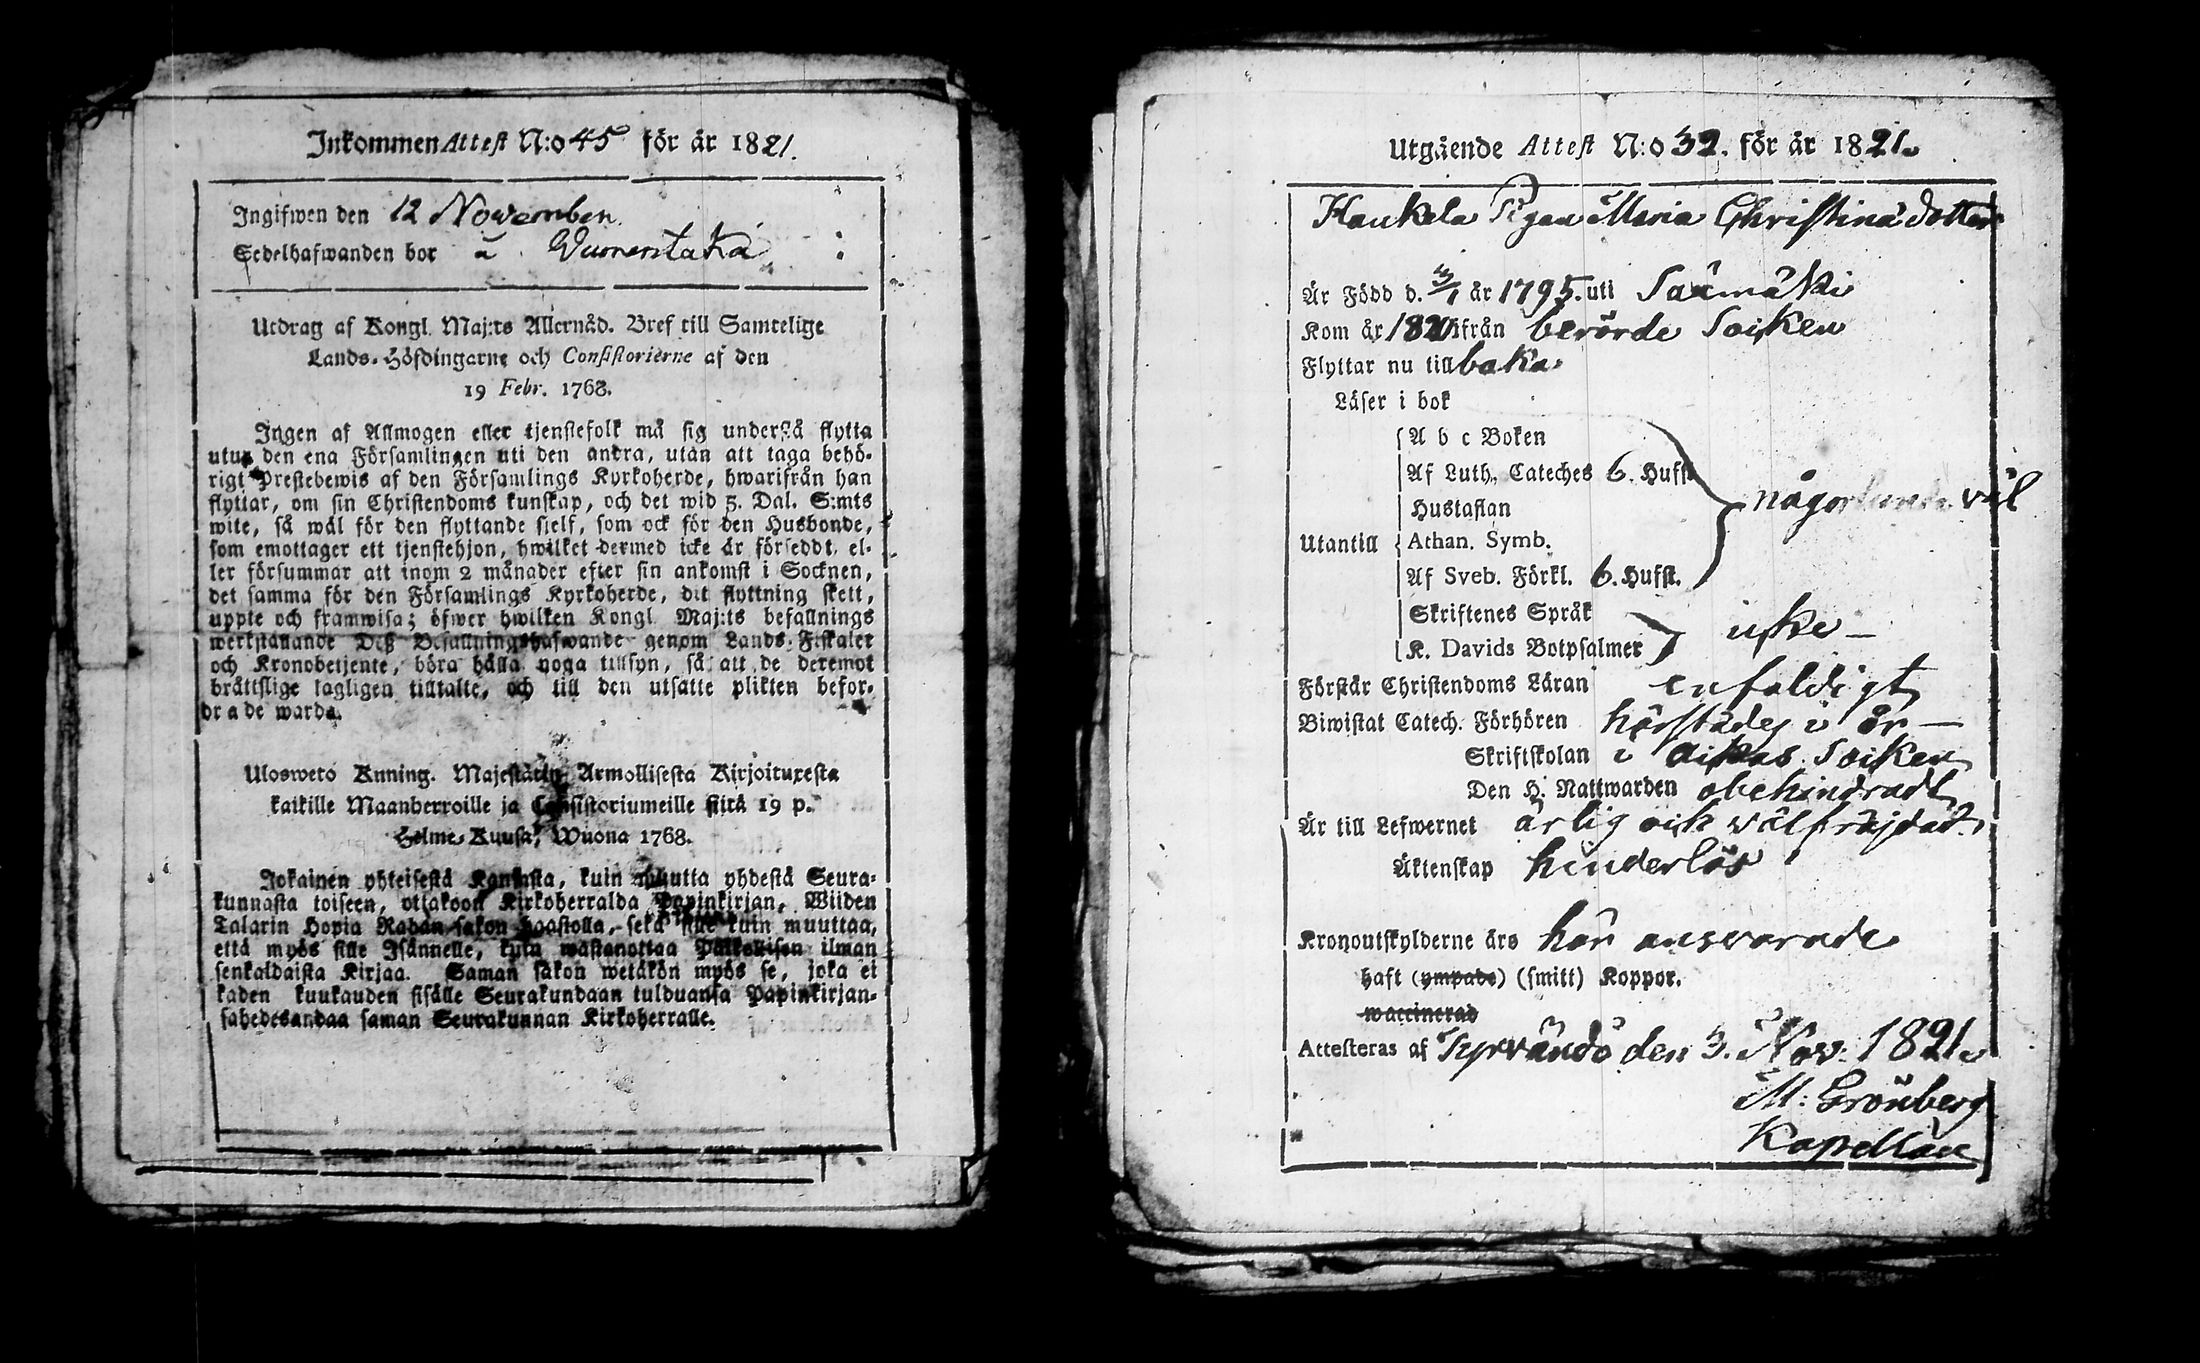 Inkommen Attest N:o 45 för år 1821.
Ingifwen den 12 November
Sedelhafwanden bor i
Utdrag af Kongl. Maj:ts Allernåd. Bref till Samtelige
Lands-Höfdingarne och Consistorierne af den
19 Febr. 1768.
Ingen af Allmogen eller tjenstefolk må sig understå flytta
utur den ena Församlingen uti den andra, utan att taga behö-
rigt Prestebewis af den Församlings Kyrkoherde, hwarifrån han
flyttar, om sin Christendoms kunskap, och det wid 5. Dal. S:mts
wite, så wäl för den flyttande sjelf, som ock för den Husbonde,
som emottager ett tjenstehjon, hwilket dermed icke är förseddt, el-
ler försummar att inom 2 månader efter sin ankomst i Socknen,
det samma för den Församlings Kyrkoherde, dit flyttning skett,
uppte och framwisa; öfwer hwilken Kongl. Maj:ts befallnings
werkställande Deß Befallningshafwande genom Lands-Fiskaler
och Kronobetjente, böra hålla noga tillsyn, så att de deremot
bråttslige lagligen tilltalte, och till den utsatte plikten befor-
drade warda.
Uloswetö Knning. Majestätin Armollisesta Kirjoituxesta
kaikille Maanherroille ja Consistoriumeille siitä 19 p.
Helme-Kuusa, Wuona 1768.
Jokainen yhteisestä Kansasta, kuin muutta yhdestä Seura-
kunnasta toiseen, ottakoon Kirkoherralda Papinkirjan, Wiiden
Talarin Hopia Rahan sakon haastolla, sekä sille kuin muuttaa,
että myös sille Isännelle, kuin wastanottaa Palkollisen ilman
senkaldaista Kirjaa. Saman sakon wetäkön myös se, joka ei
kahden kuukauden sisälle Seurakundaan tulduansa Papinkirjan-
sahedesandaa saman Seurakunnan Kirkoherralle.
Utgående Attest N:o 32. för år 1821.
Haukela Pigan Maria Christina dotter
Är Född d. 3/1 år 1795. uti Säxmäki
Kom år 1820 ifrån berörde Socken
Flyttar nu tillbaka
Läser i bok
A b c Boken
Af Luth. Cateches 6. Hufst.
Hustaflan
någorlunda väl
Utantill Athan. Symb.
Af Sveb. Förkl. 6. Hufst.
Skriftenes Språk
icke –
K. Davids Botpsalmer
Förstår Christendoms Läran enfaldigt
Biwistat Catech. Förhören härstädes i år –
Skriftskolan i Socken
Den H. Nattwarden obehindradt
Är till Lefwernet ärlig och välfräjdad
Äktenskap hinderlös
Kronoutskylderne äro här ansvarade
haft (ympade) (smitt) Koppor.
waccinerad
Attesteras af Tyrvändö den 3. Nov. 1821.
M: Grönberg
Kapellan